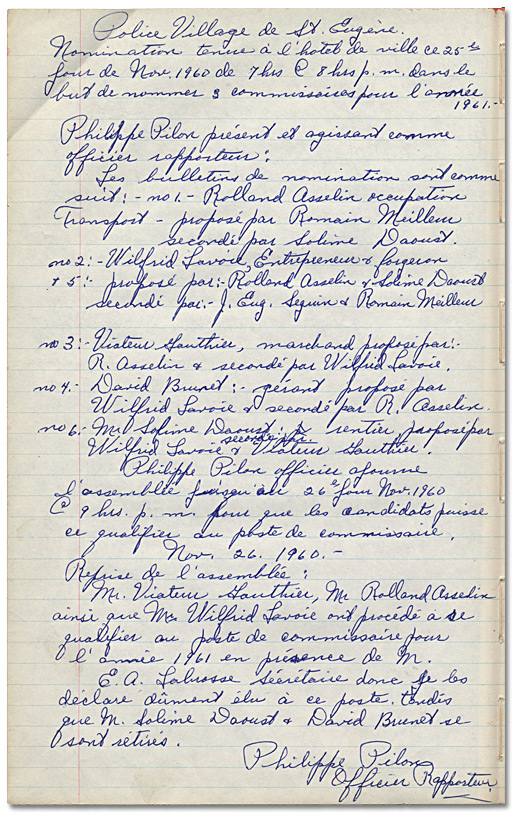 Police Village de St. Eugène.
Nomination tenue à l'hotel de ville ce 25e
jour de Nov. 1960 de 7hrs @ 8hrs p.m. dans le
but de nommer 3 commissaires pour l'année
1961.-
Philippe Pilon présent et agissant comme
officier rapporteur:
Les bulletins de nomination sont comme
suit:- no 1.- Rolland Asselin occupation
Transport - proposé par Romain Meilleur
secondé par Solime Daoust.
no 2:- Wilfrid Lavoie, Entrepreneur & forgeron
+ 5:- proposé par:- Rolland Asselin & Solime Daoust
secondé par:- J. Eug. Seguin & Romain Meilleur
no 3:- Viateur Gauthier, marchand, proposé par:-
R. Asselin & secondé par Wilfrid Lavoie.
no 4.- David Brunet:- gérant proposé par
Wilfrid Lavoie & secondé par R. Asselin.
no 6:- Mr. Solime Daoust: rentier, proposé par
secondé par
Wilfrid Lavoie & Viateur Gauthier.
Philippe Pilon officier ajourne
l'assemblée jusqu'au 26e jour Nov. 1960
@ 9 hrs. p.m. pour que les candidats puisse
ce qualifier au poste de commissaire.
Nov. 26. 1960.-
Reprise de l'assemblée:
Mr. Viateur Gauthier, Mr Rolland Asselin
ainsi que Mr. Wilfrid Lavoie ont procédé a se
qualifier au poste de commissaire pour
l'année 1961 en présence de M.
E. A. Labrosse Sécrétaire donc je les
déclare dûment élu à ce poste. tandis
que M. Solime Daoust & David Brunet se
sont rétirés.
Philippe Pilon
Officier Rapporteur